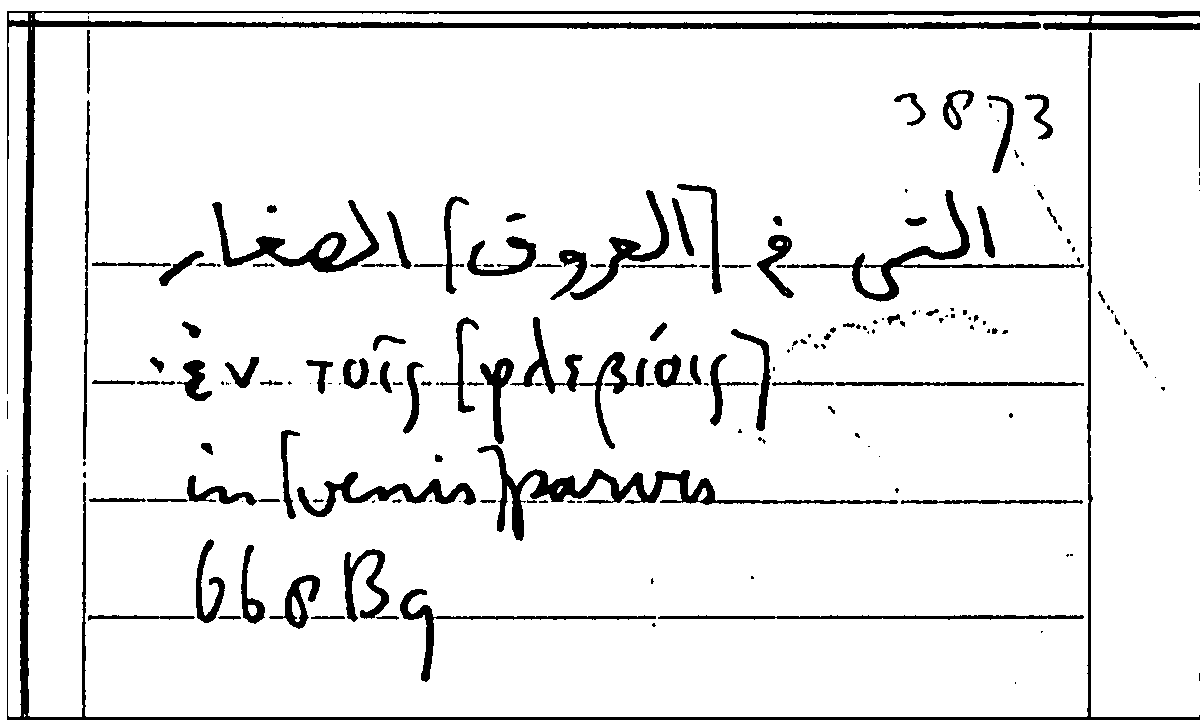 3873
التى فى [العروق] الصغار
ἐν τοῖς [φλεβίοις]
in [venis] parvis
668 B9